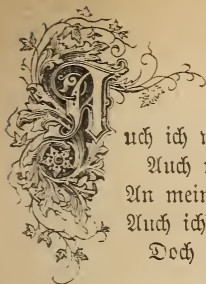 Auch ich
Auch
An mein
Auch ich
Doch